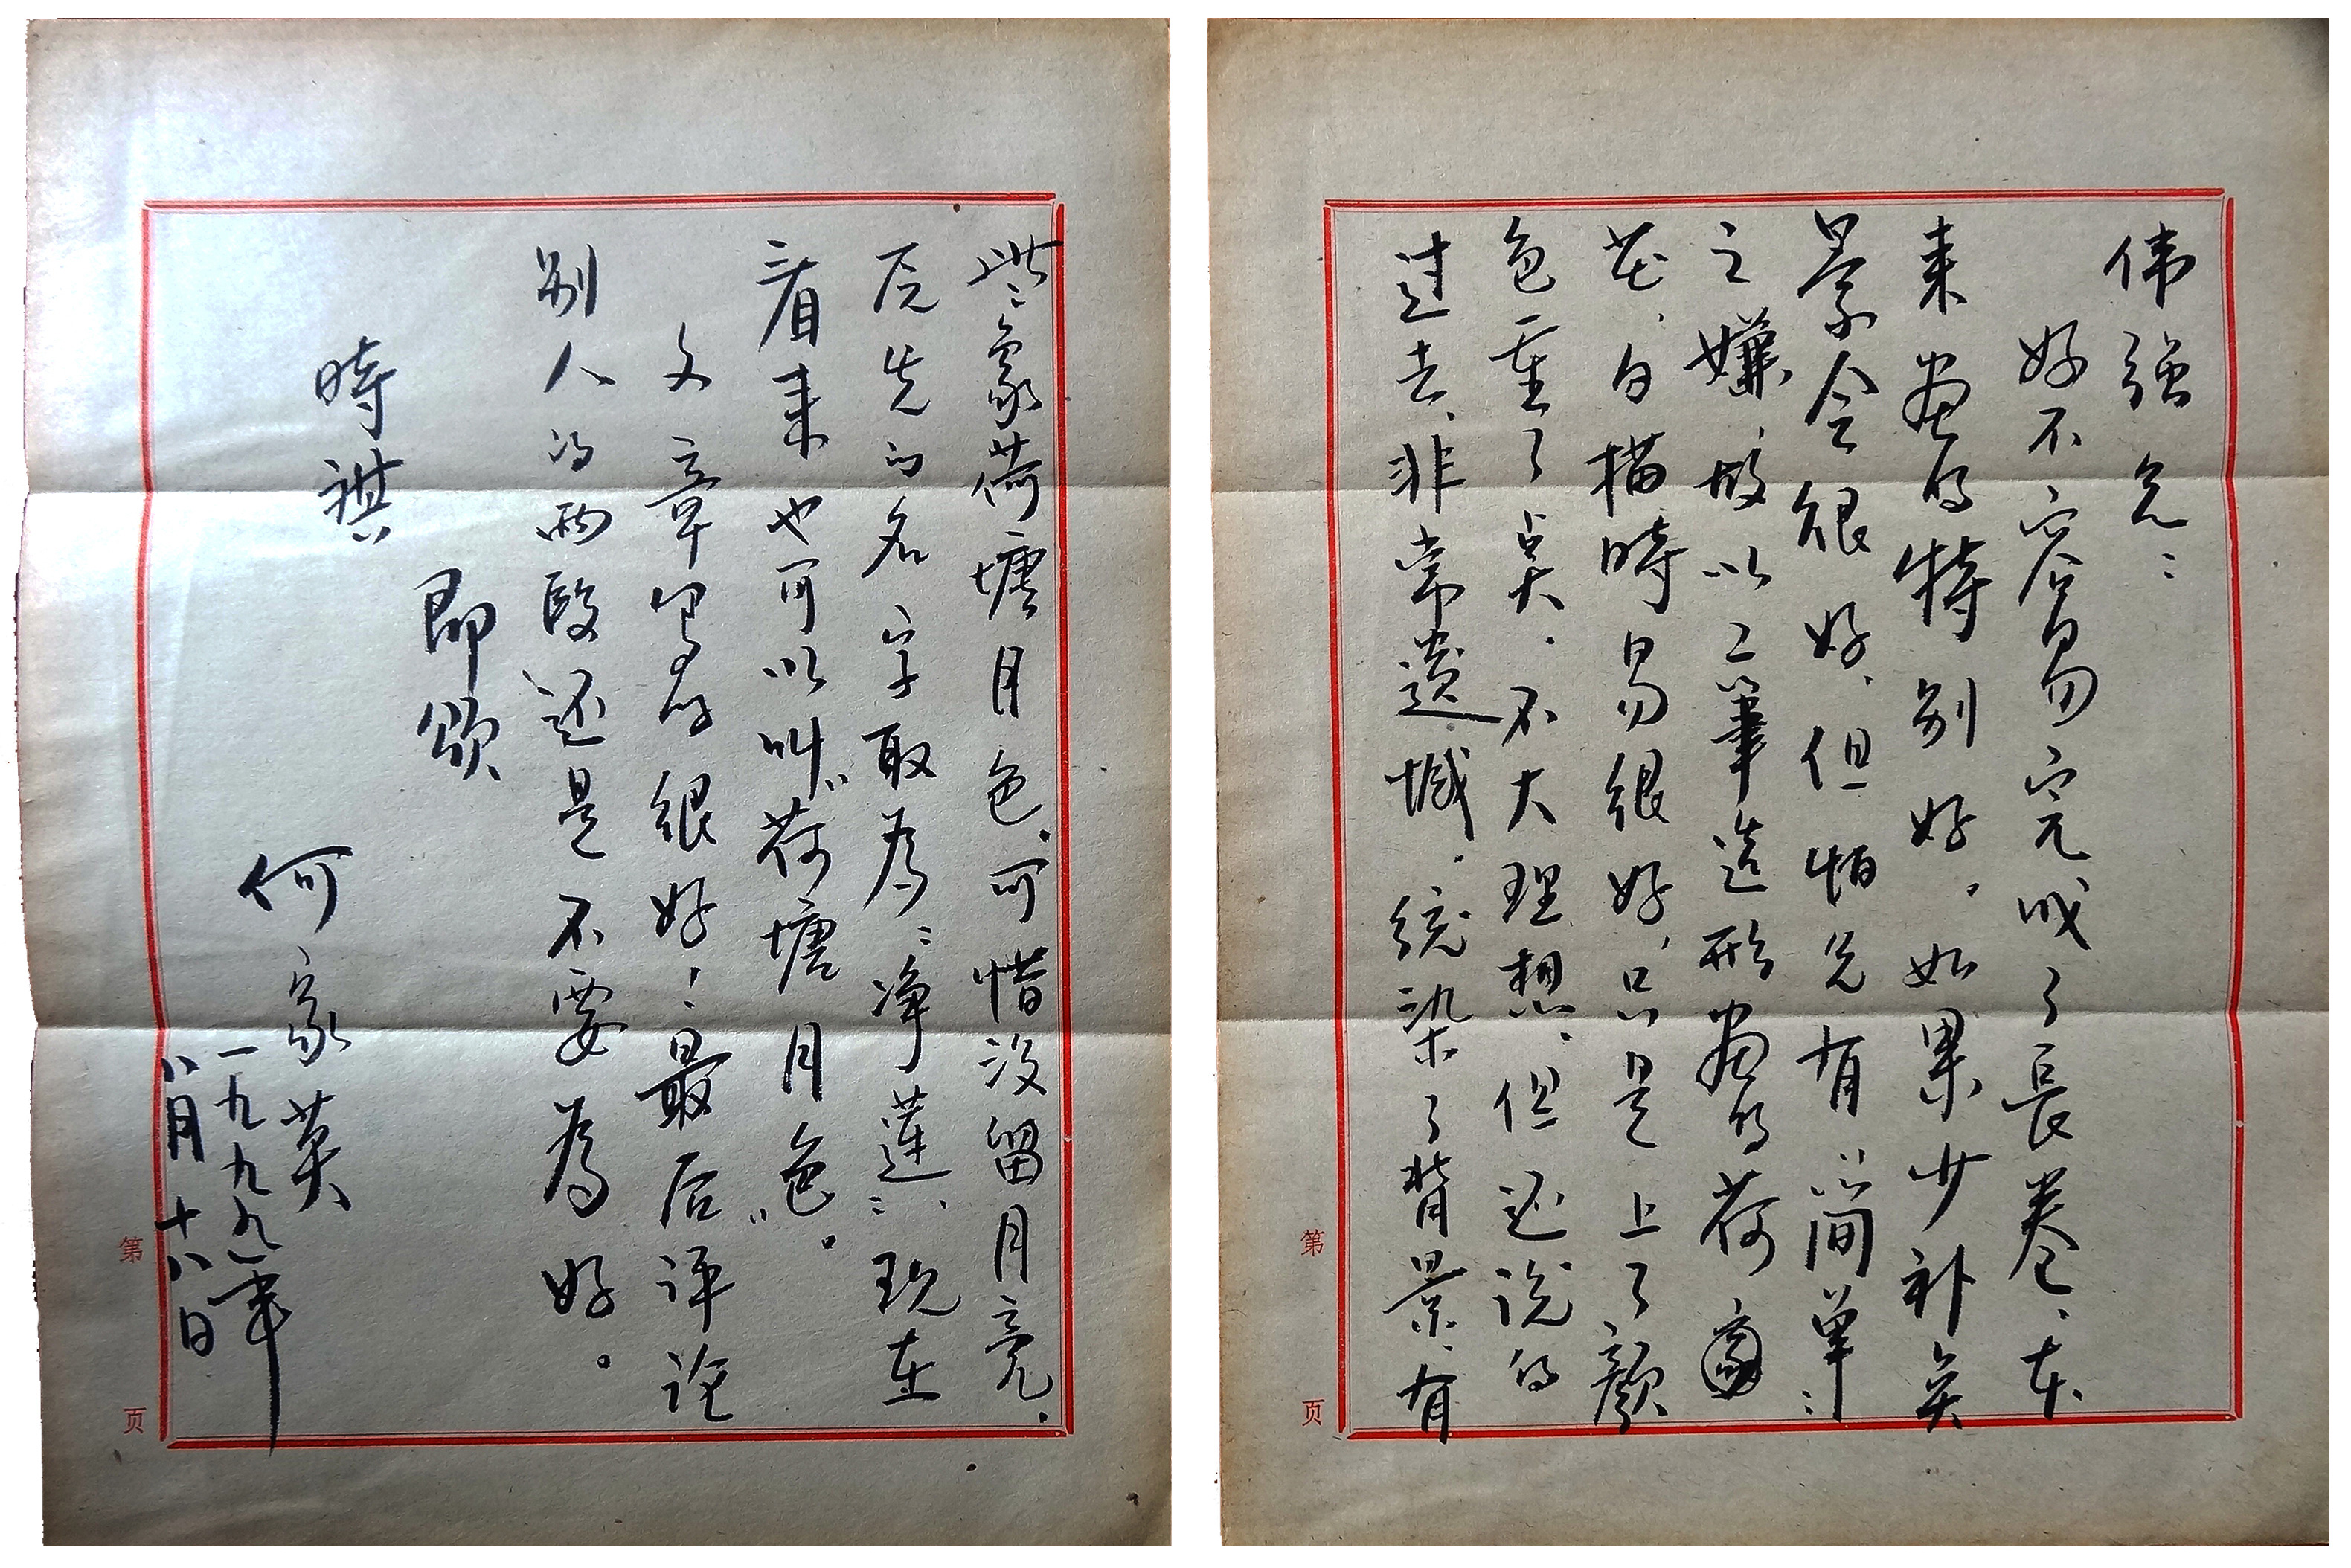 伟強兄：
好不容易完成了長卷、本
来畫的特别好。如果少补矣
景会很好、但怕兄有“簡单”
之嫌、故以工筆造形畫的荷
花、白描時易很好、只是上了顏
色重了矣、不大理想、但还说的
过去、非常遗憾。統染了背景、有
些象荷塘月色、可惜没留月亮、
原先的名字取为“净蓮”、现在
看来也可以叫“荷塘月色”。
文章写的很好！最后评论
别人的两段还是不要為好。
即頌
時祺
何家英
一九九九年
八月十八日
第 页
第 页